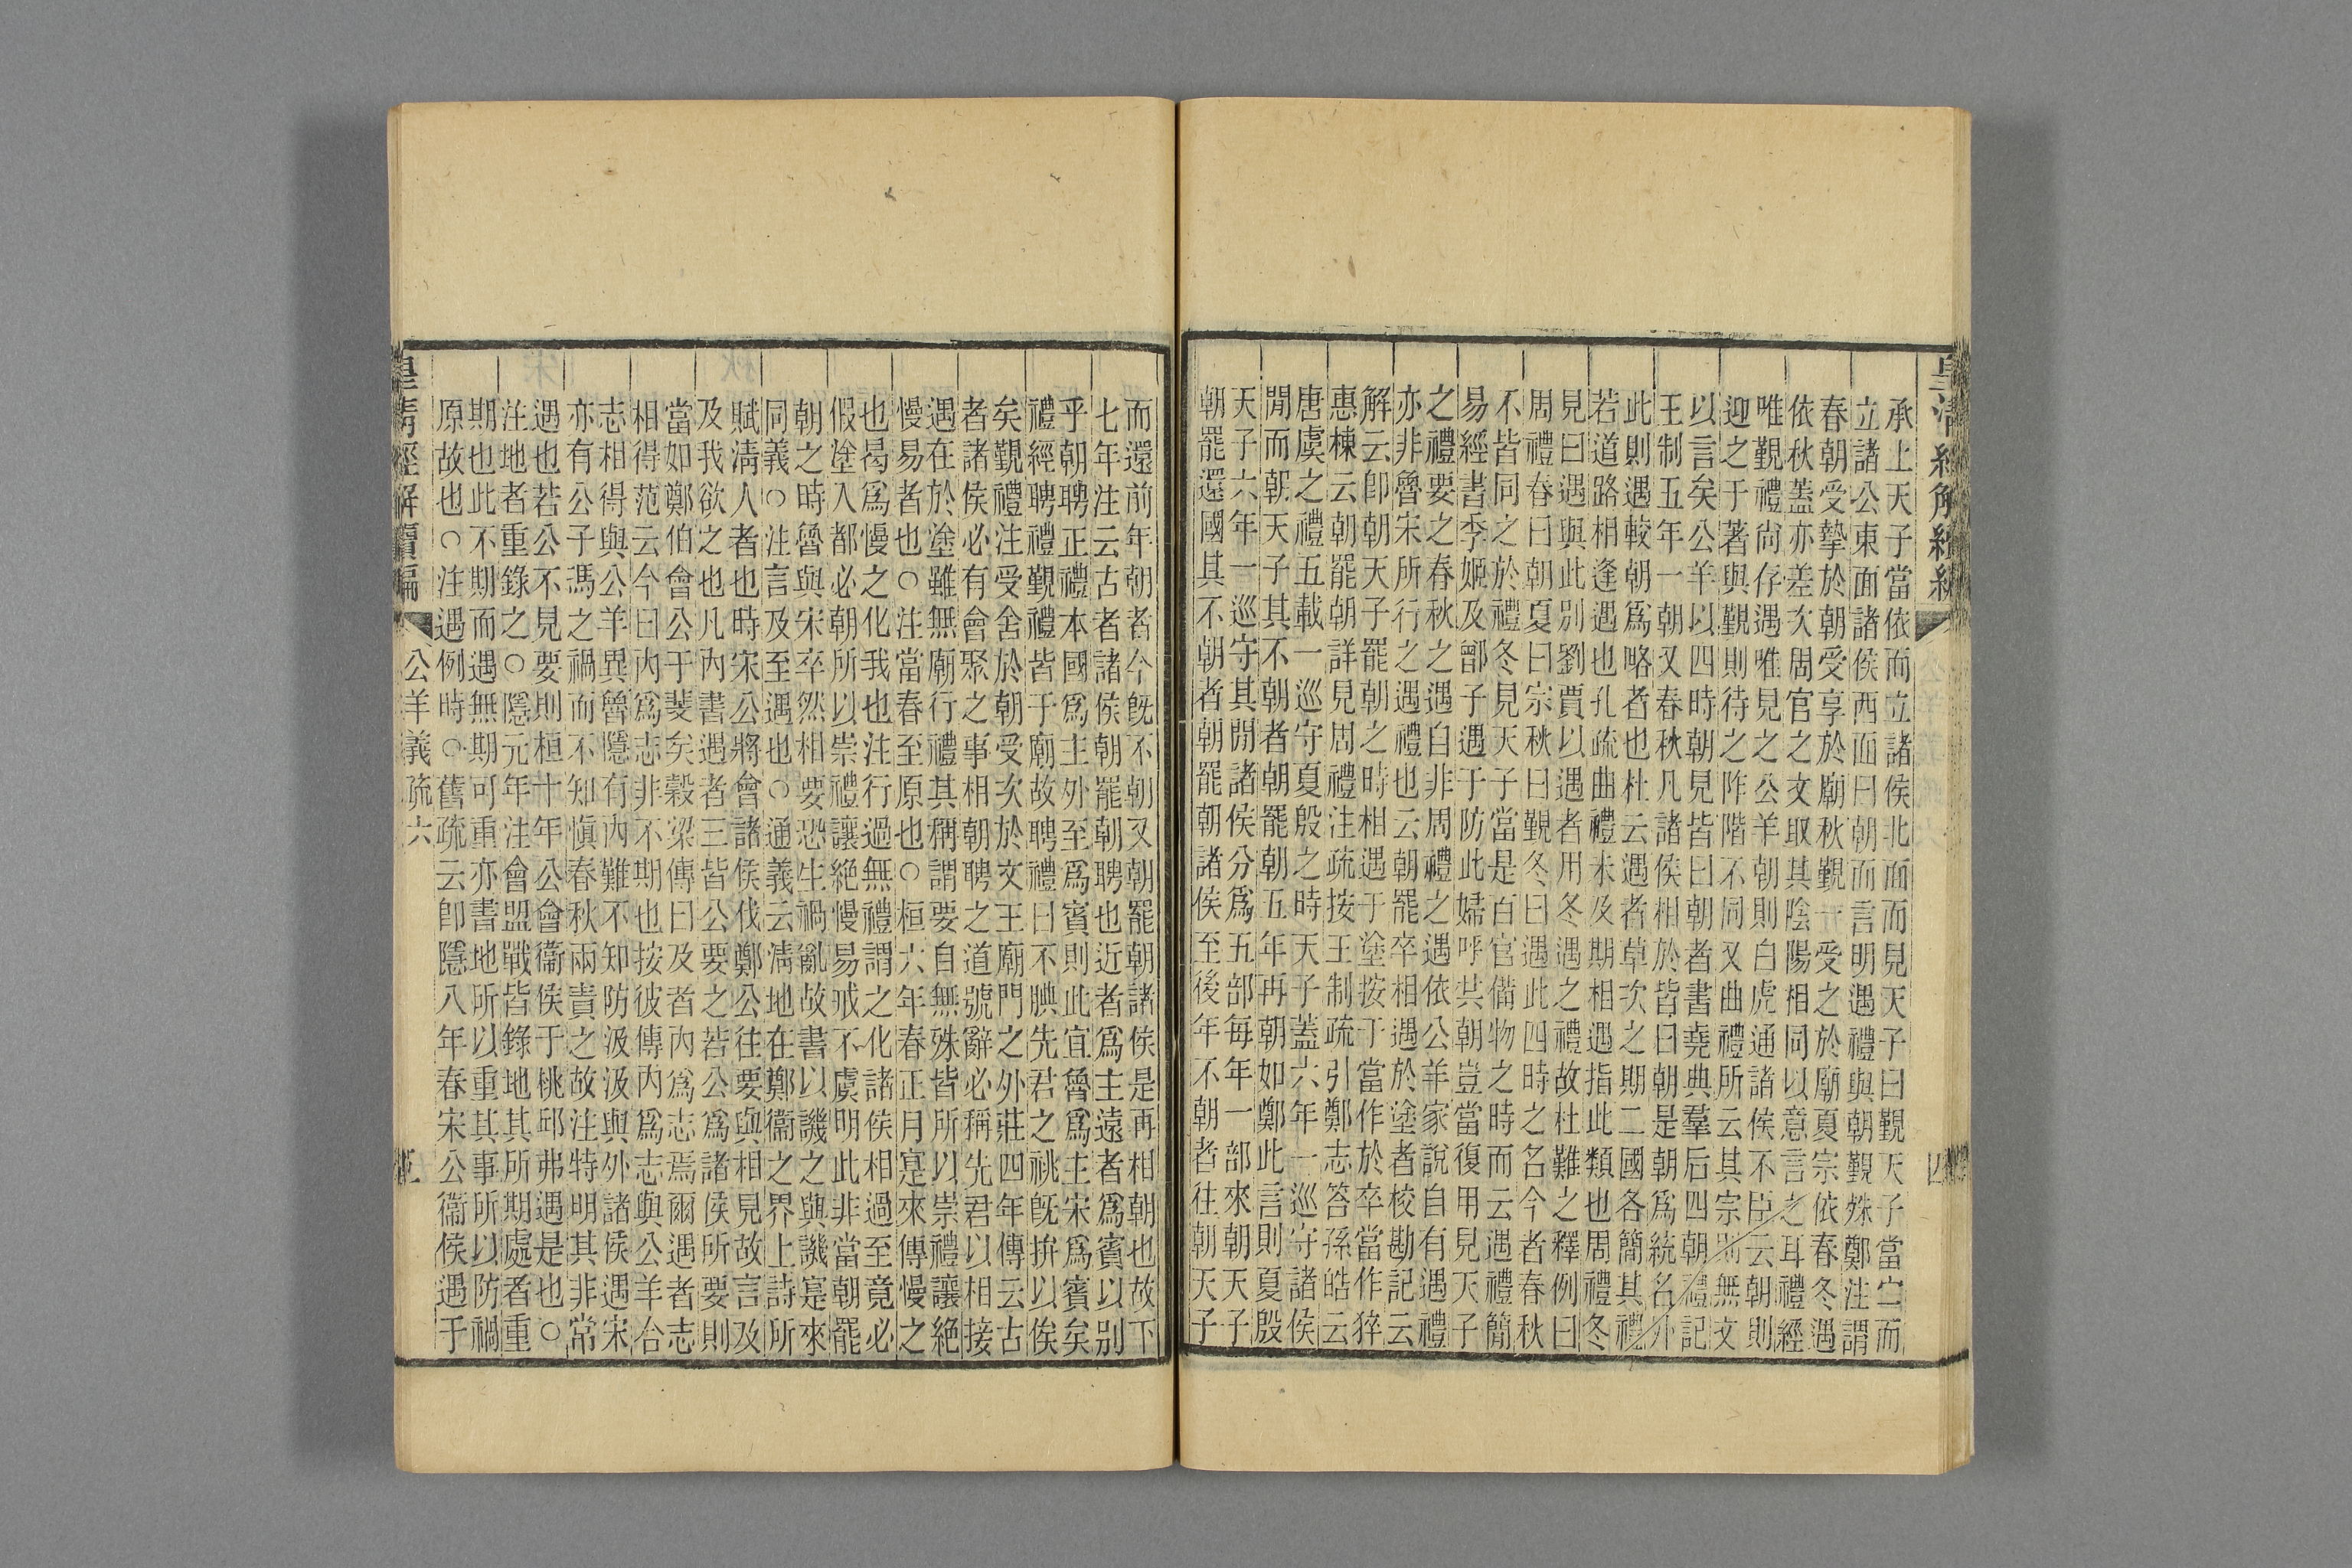 皇清經解續編
承上天子當依而立諸侯北面而見天子曰覲天子當宁而
立諸公東面諸侯西面曰朝而言明遇禮與朝覲殊鄭注謂
春朝受摯於朝受享於廟秋覲一受之於廟夏宗依春冬遇
依秋蓋亦差次周官之文取其陰陽相同以意言之耳禮經
唯覲禮尚存遇唯見之公羊朝則白虎通諸侯不臣云朝則
迎之于著與覲則待之阼階不同又曲禮所云其宗則無文
以言矣公羊以四時朝見皆曰朝者書堯典羣后四朝禮記
王制五年一朝又春秋凡諸侯相於皆曰朝是朝爲統名外
此則遇較朝爲略者也杜云遇者草次之期二國各簡其禮
若道路相逢遇也孔疏曲禮未及期相遇指此類也周禮冬
見曰遇與此別劉賈以遇者用冬遇之禮故杜難之釋例曰
周禮春曰朝夏曰宗秋曰覲冬曰遇此四時之名今者春秋
不皆同之於禮冬見天子當是百官備物之時而云遇禮簡
易經書季姬及鄫子遇于防此婦呼其朝豈當復用見天子
之禮要之春秋之遇自非周禮之遇依公羊家說自有遇禮
亦非魯宋所行之遇禮也云朝罷卒相遇於塗者校勘記云
解云卽朝天子罷朝之時相遇于塗按于當作於卒當作猝
惠棟云朝罷朝詳見周禮注疏按王制疏引鄭志荅孫皓云
唐虞之禮五載一巡守夏殷之時天子蓋六年一巡守諸侯
閒而朝天子其不朝者朝罷朝五年再朝如鄭此言則夏殷
天子六年一巡守其閒諸侯分爲五部每年一部來朝天子
朝罷還國其不朝者朝罷朝諸侯至後年不朝者往朝天子
而還前年朝者今旣不朝又朝罷朝諸侯是再相朝也故下
七年注云古者諸侯朝罷朝聘也近者爲主遠者爲賓以別
乎朝聘正禮本國爲主外至爲賓則此宜魯爲主宋爲賓矣
禮經聘禮覲禮皆于廟故聘禮曰不腆先君之祧旣拚以俟
矣覲禮注受舍於朝受次於文王廟門之外莊四年傳云古
者諸侯必有會聚之事相朝聘之道號辭必稱先君以相接
遇在於塗雖無廟行禮其稱謂要自無殊皆所以崇禮讓絕
慢易者也○注當春至原也○桓六年春正月寔來傳慢之
也曷爲慢之化我也注行過無禮謂之化諸侯相過至竟必
假塗入都必朝所以崇禮讓絕慢易戒不虞明此非當朝罷
朝之時魯與宋卒然相要恐生禍亂故書以譏之與譏寔來
同義○注言及至遇也○通義云淸地在鄭衞之界上詩所
賦淸人者也時宋公將會諸侯伐鄭公往要與相見故言及
及我欲之也凡內書遇者三皆公要之若公爲諸侯所要則
當如鄭伯會公于斐矣穀梁傳曰及者內爲志焉爾遇者志
相得范云今曰內爲志非不期也按彼傳內爲志與公羊合
志相得與公羊異魯隱有內難不知防汲汲與外諸侯遇宋
亦有公子馮之禍而不知愼春秋兩責之故注特明其非常
遇也若公不見要則桓十年公會衞侯于桃邱弗遇是也○
注地者重錄之○隱元年注會盟戰皆錄地其所期處者重
期也此不期而遇無期可重亦書地所以重其事所以防禍
原故也○注遇例時○舊疏云卽隱八年春宋公衞侯遇于
皇清經解續編
公羊義疏六